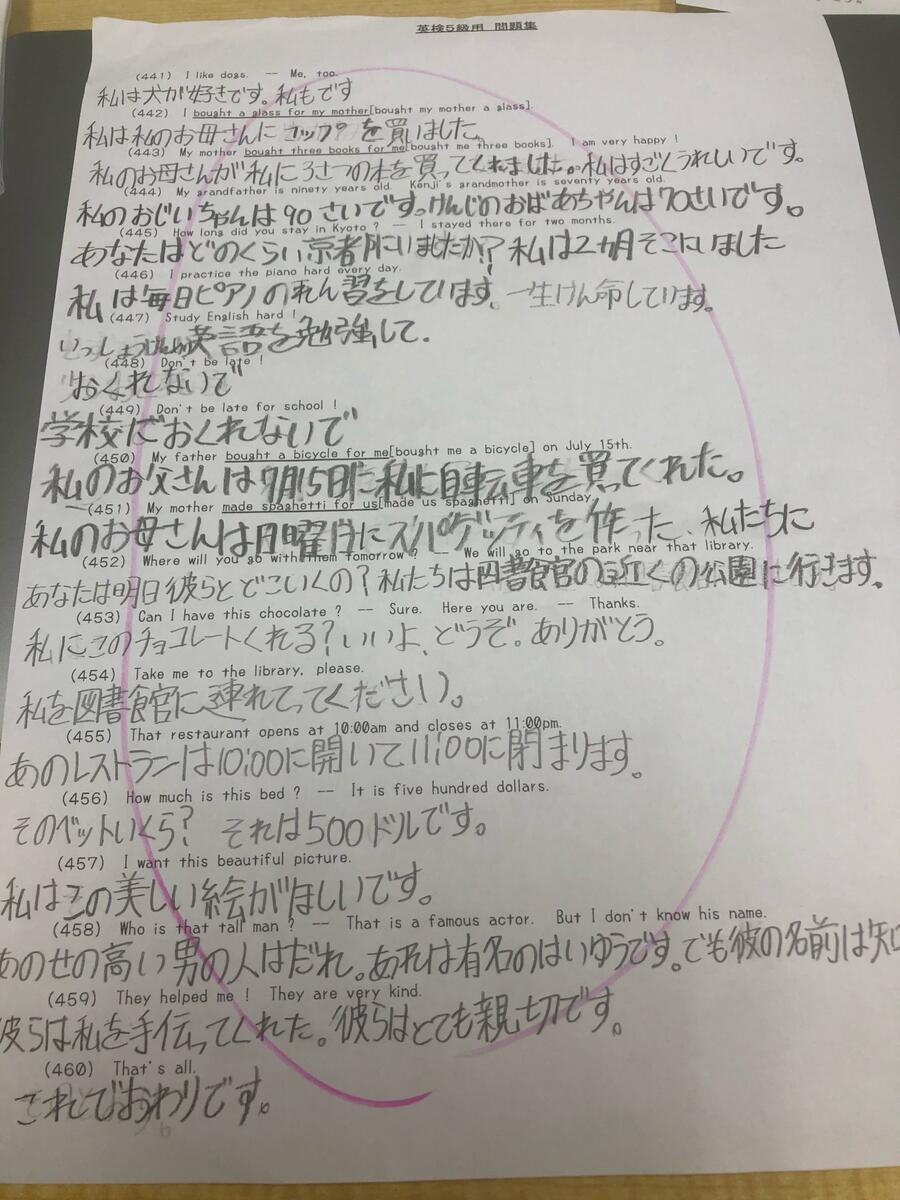 英検5級用 問題集
(441) I like dogs. -- Me, too.
私は犬が好きです。私もです
(442) I bought a glass for my mother[bought my mother a glass].
私は私のお母さんにコップを買いました。
(443) My mother bought three books for me[bought me three books]. I am very happy !
私のお母さんが私に3さつの本を買ってくれました。私はすごくうれしいです。
(444) My grandfather is ninety years old. Kenji's grandmother is seventy years old.
私のおじいちゃんは90さいです。けんじのおばあちゃんは70さいです。
(445) How long did you stay in Kyoto ? -- I stayed there for two months.
あなたはどのくらい京都にいましたか? 私は2ヵ月そこにいました
(446) I practice the piano hard every day.
私は毎日ピアノのれん習をしています。一生けん命しています。
(447) Study English hard !
いっしょうけんめい英語を勉強して.
(448) Don't be late !
おくれないで
(449) Don't be late for school !
学校におくれないで
(450) My father bought a bicycle for me[bought me a bicycle] on July 15th.
私のお父さんは7月15日に私に自転車を買ってくれた。
(451) My mother made spaghetti for us[made us spaghetti] on Sunday.
私のお母さんは日曜日にスパゲッティを作った、私たちに
(452) Where will you go with them tomorrow ? -- We will go to the park near that library.
あなたは明日彼らとどこいくの?私たちは図書館の近くの公園に行きます。
(453) Can I have this chocolate ? -- Sure. Here you are. -- Thanks.
私にこのチョコレートくれる?いいよ、どうぞ。ありがとう。
(454) Take me to the library, please.
私を図書館に連れてってください。
(455) That restaurant opens at 10:00am and closes at 11:00pm.
あのレストランは10:00に開いて11:00に閉まります。
(456) How much is this bed ? -- It is five hundred dollars.
そのベットいくら? それは500ドルです。
(457) I want this beautiful picture.
私はこの美しい絵がほしいです。
(458) Who is that tall man ? -- That is a famous actor. But I don't know his name.
あのせの高い男の人はだれ。あれは有名のはいゆうです。でも彼の名前は知
(459) They helped me ! They are very kind.
彼らは私を手伝ってくれた。彼らはとても親切です。
(460) That's all.
これでおわりです。